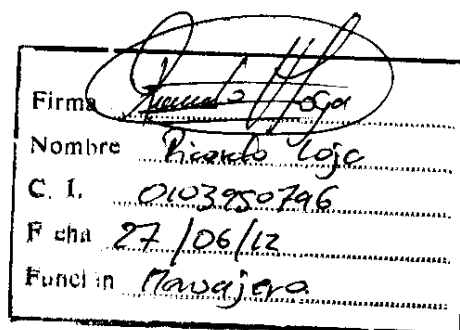 Firma Ricardo Loja
Nombre Ricardo Loja
C. I. 0103950796
F cha 27/06/12
Funci n Manajero